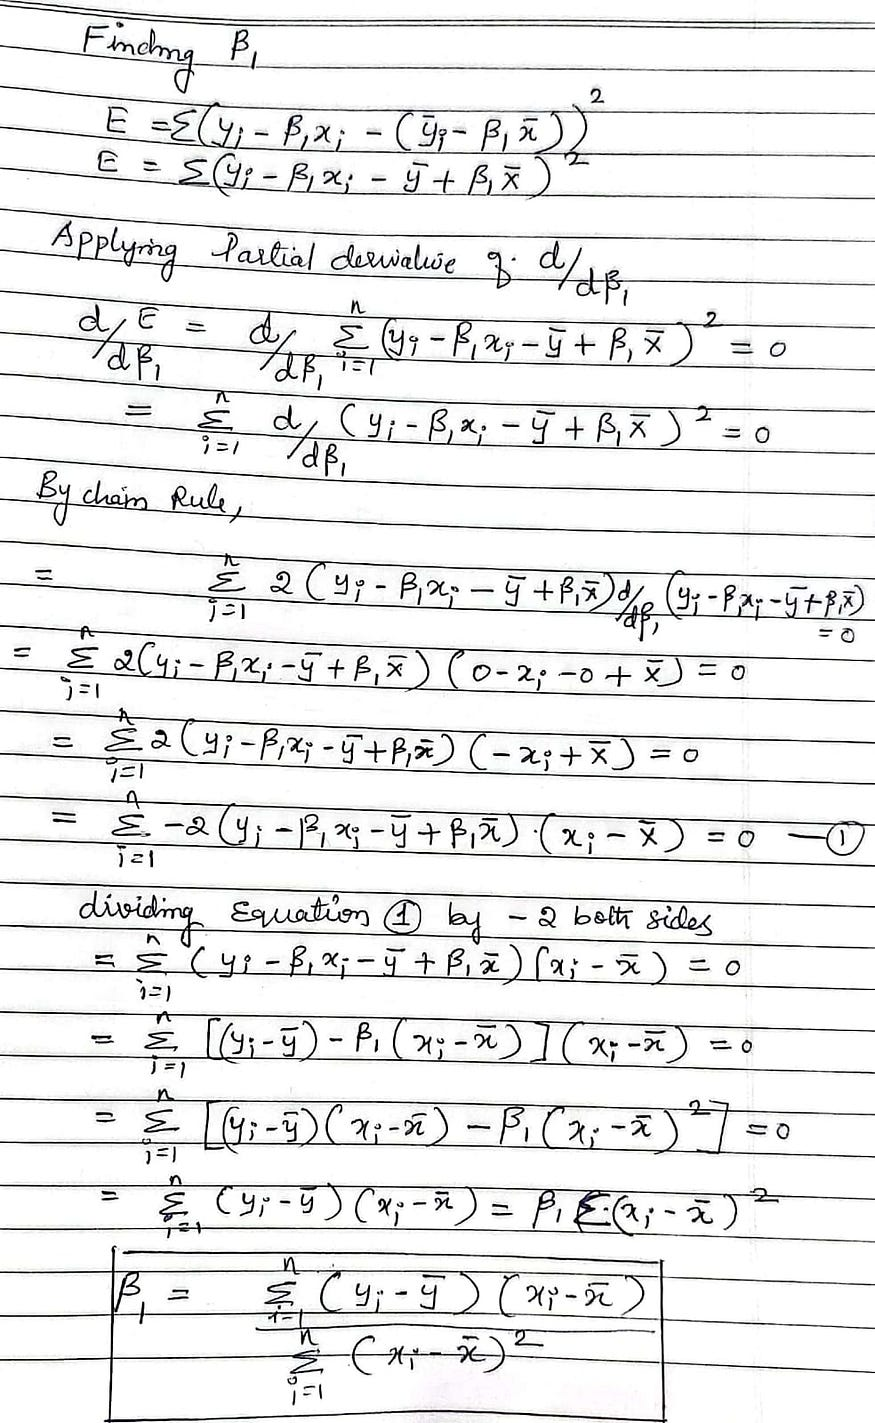 Finding β₁
E = Σ(yᵢ - β₁xᵢ - (ȳᵢ - β₁x̄))²
E = Σ(yᵢ - β₁xᵢ - ȳ + β₁x̄)²
Applying Partial derivative of d/dβ₁
d/dβ₁ E = d/dβ₁ Σᵢ₌₁ⁿ (yᵢ - β₁xᵢ - ȳ + β₁x̄)² = 0
= Σᵢ₌₁ⁿ d/dβ₁ (yᵢ - β₁xᵢ - ȳ + β₁x̄)² = 0
By chain Rule,
= Σᵢ₌₁ⁿ 2(yᵢ - β₁xᵢ - ȳ + β₁x̄) d/dβ₁ (yᵢ - β₁xᵢ - ȳ + β₁x̄) = 0
= Σᵢ₌₁ⁿ 2(yᵢ - β₁xᵢ - ȳ + β₁x̄) (0 - xᵢ - 0 + x̄) = 0
= Σᵢ₌₁ⁿ 2(yᵢ - β₁xᵢ - ȳ + β₁x̄) (-xᵢ + x̄) = 0
= Σᵢ₌₁ⁿ -2(yᵢ - β₁xᵢ - ȳ + β₁x̄) · (xᵢ - x̄) = 0 — ①
dividing Equation ① by - 2 both sides
= Σᵢ₌₁ⁿ (yᵢ - β₁xᵢ - ȳ + β₁x̄) (xᵢ - x̄) = 0
= Σᵢ₌₁ⁿ [(yᵢ - ȳ) - β₁(xᵢ - x̄)] (xᵢ - x̄) = 0
= Σᵢ₌₁ⁿ [(yᵢ - ȳ)(xᵢ - x̄) - β₁(xᵢ - x̄)²] = 0
= Σᵢ₌₁ⁿ (yᵢ - ȳ)(xᵢ - x̄) = β₁ Σ(xᵢ - x̄)²
β₁ = Σᵢ₌₁ⁿ (yᵢ - ȳ)(xᵢ - x̄)
Σᵢ₌₁ⁿ (xᵢ - x̄)²